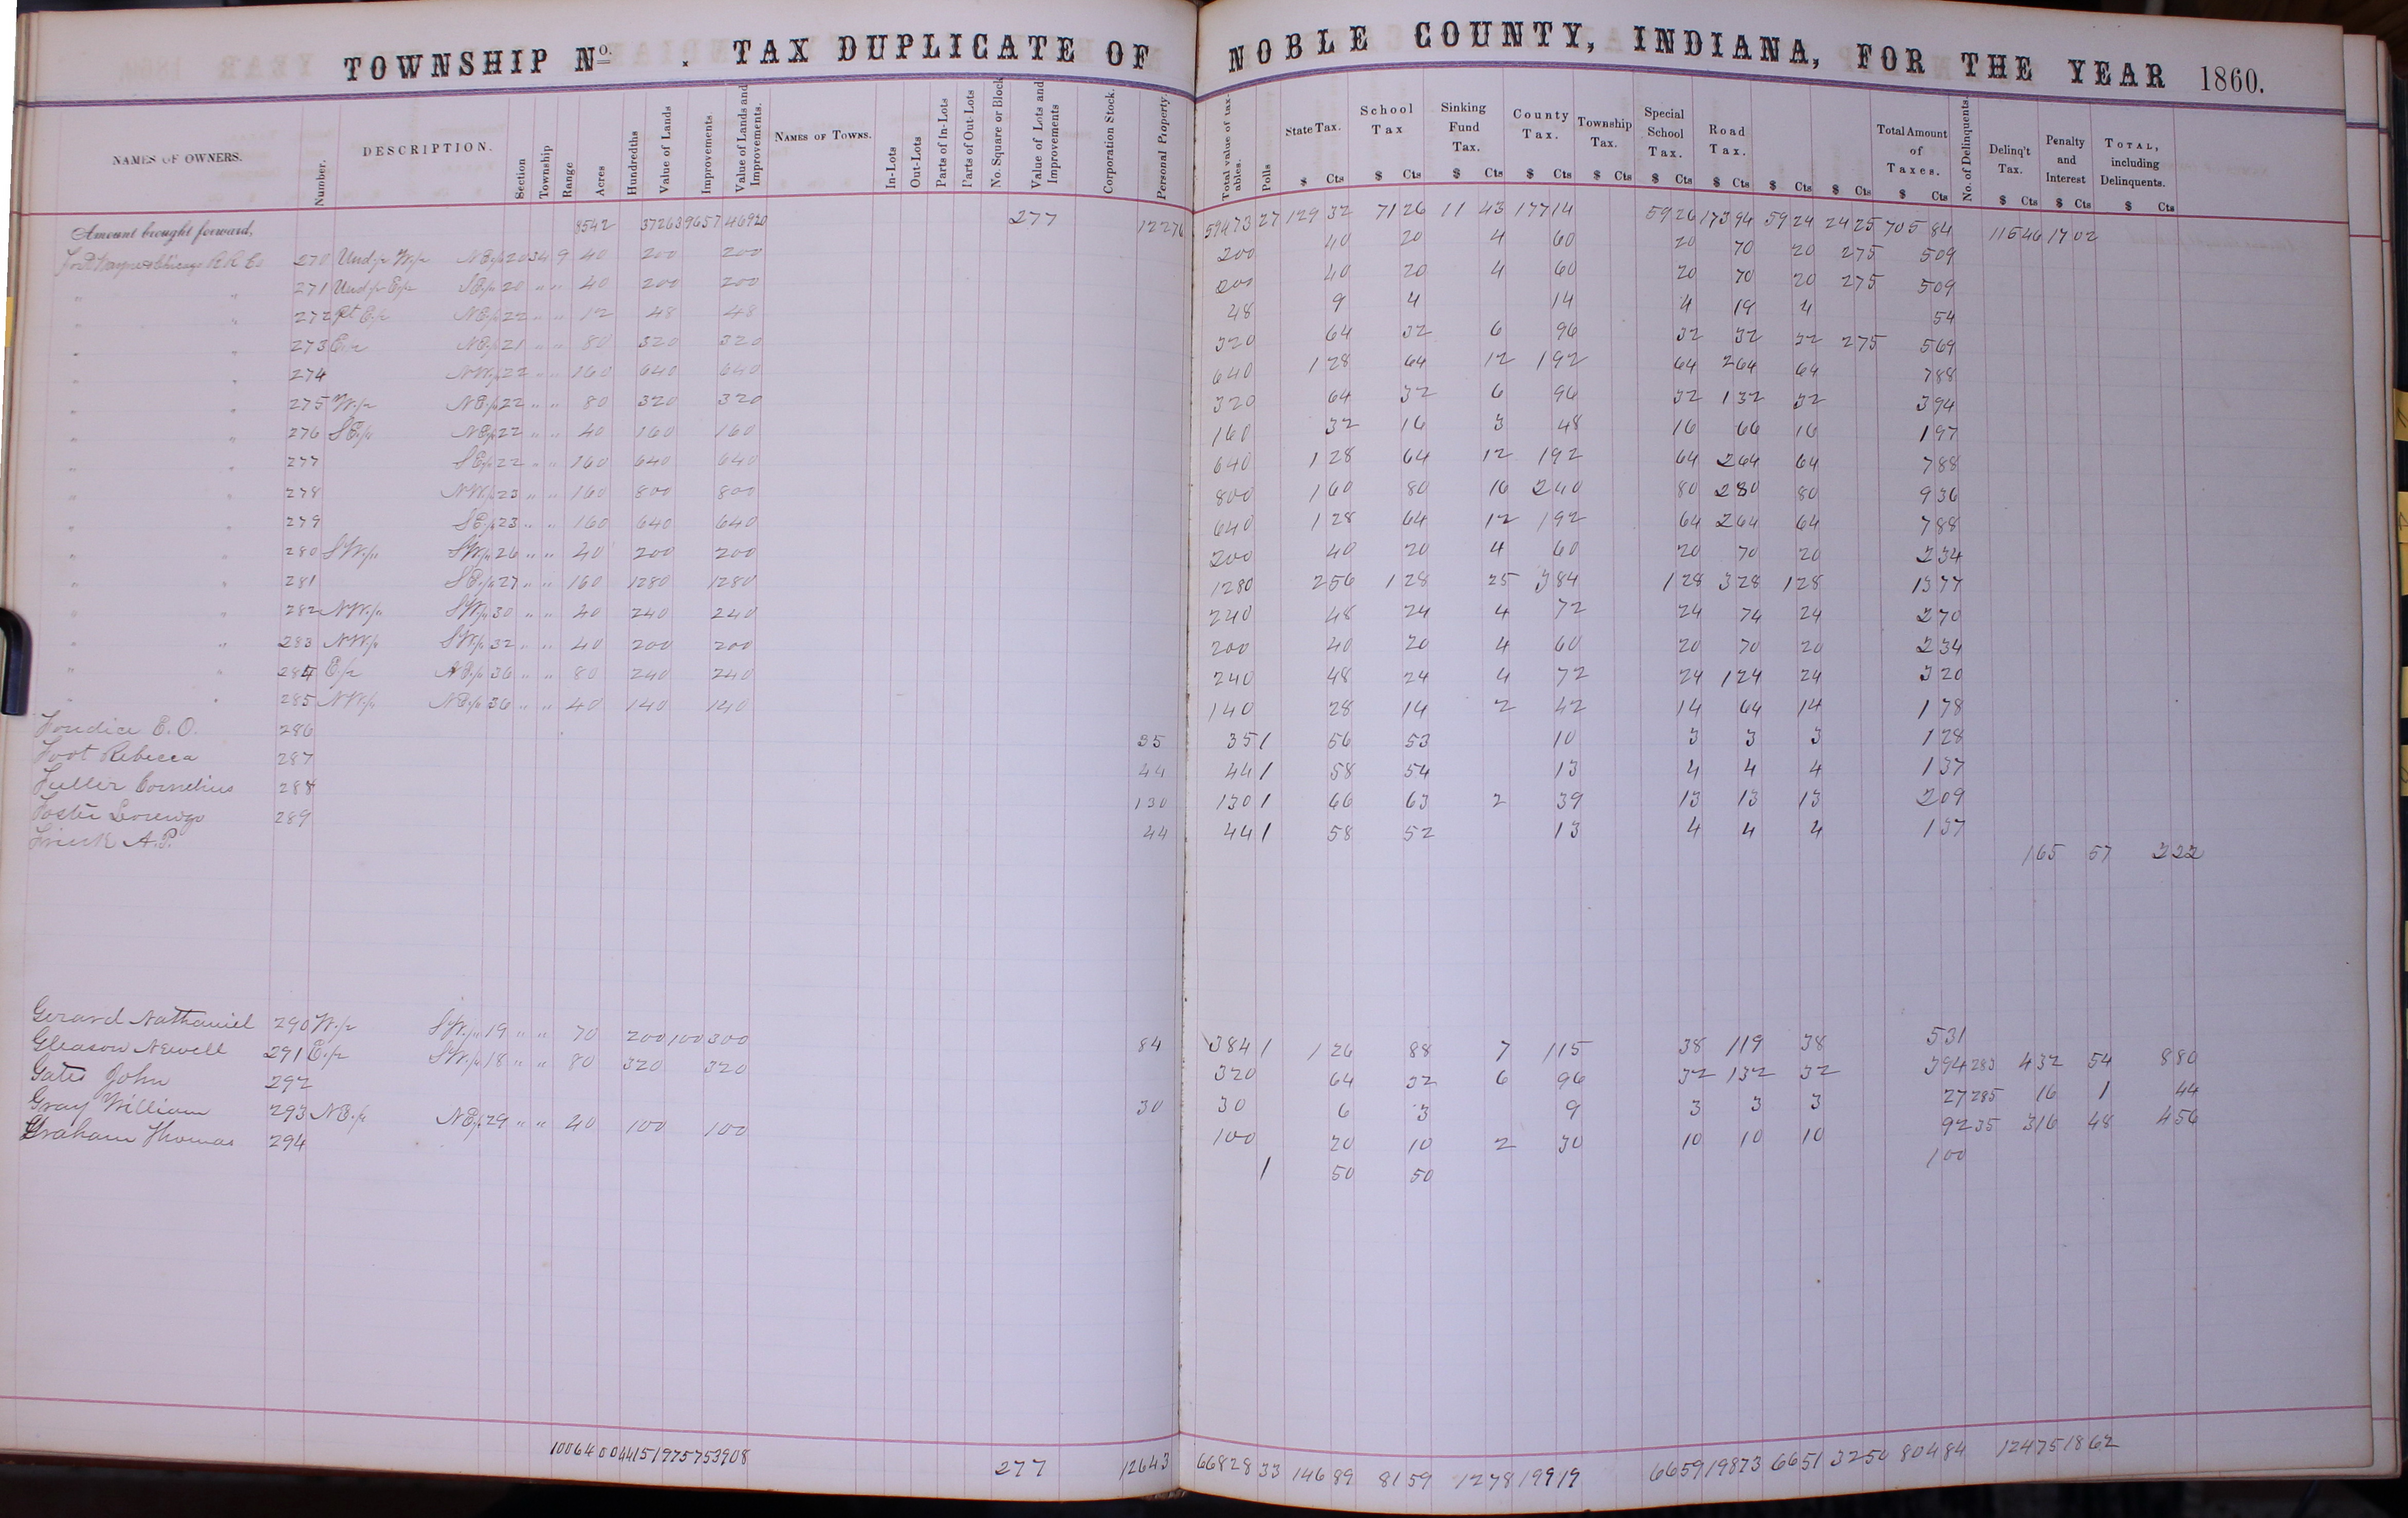 TOWNSHIP No. . TAX DUPLICATE OF NOBLE COUNTY, INDIANA, FOR THE YEAR 1860.
NAMES OF OWNERS. Number. DESCRIPTION. Section Township Range Acres Hundredths Value of Lands Improvements. Value of Lands and Improvements. NAMES OF TOWNS. In-Lots Out-Lots Parts of In-Lots Parts of Out-Lots No. Square or Block Value of Lots and Improvements Corporation Stock. Personal Property. Total value of taxables. Polls State Tax. $ Cts School Tax $ Cts Sinking Fund Tax. $ Cts County Tax. $ Cts Township Tax. $ Cts Special School Tax. $ Cts Road Tax. $ Cts $ Cts $ Cts Total Amount of Taxes. $ Cts No. of Delinquents. Delinq't Tax. $ Cts Penalty and Interest $ Cts TOTAL, including Delinquents. $ Cts
Amount brought forward, 8542 37263 9657 46920 277 12276 59473 27 129 32 71 26 11 43 177 14 59 26 173 94 59 24 24 25 705 84 115 46 17 02
Fort Wayne & Chicago R R Co 270 Und 1/2 W 1/2 NE 1/4 20 34 9 40 200 200 200 40 20 4 60 20 70 20 275 5 09
" " 271 Und 1/2 E 1/2 SE 1/4 20 " " 40 200 200 200 40 20 4 60 20 70 20 275 5 09
" " 272 Pt E 1/2 NE 1/4 22 " " 12 48 48 48 9 4 14 4 19 4 54
" " 273 E 1/2 NE 1/4 21 " " 80 320 320 320 64 32 6 96 32 32 32 275 5 69
" " 274 NW 1/4 22 " " 160 640 640 640 1 28 64 12 1 92 64 2 64 64 7 88
" " 275 W 1/2 NE 1/4 22 " " 80 320 320 320 64 32 6 96 32 1 32 32 3 94
" " 276 SE 1/4 NE 1/4 22 " " 40 160 160 160 32 16 3 48 16 66 16 1 97
" " 277 SE 1/4 22 " " 160 640 640 640 1 28 64 12 1 92 64 2 64 64 7 88
" " 278 NW 1/4 23 " " 160 800 800 800 1 60 80 16 2 40 80 2 80 80 9 36
" " 279 SE 1/4 23 " " 160 640 640 640 1 28 64 12 1 92 64 2 64 64 7 88
" " 280 SW 1/4 SW 1/4 26 " " 40 200 200 200 40 20 4 60 20 70 20 2 34
" " 281 SE 1/4 27 " " 160 1280 1280 1280 2 56 1 28 25 3 84 1 28 3 28 1 28 13 77
" " 282 NW 1/4 SW 1/4 30 " " 40 240 240 240 48 24 4 72 24 74 24 2 70
" " 283 NW 1/4 SW 1/4 32 " " 40 200 200 200 40 20 4 60 20 70 20 2 34
" " 284 E 1/2 NE 1/4 36 " " 80 240 240 240 48 24 4 72 24 1 24 24 3 20
" " 285 NW 1/4 NE 1/4 36 " " 40 140 140 140 28 14 2 42 14 64 14 1 78
Fordice E. O. 286 35 35 1 56 53 10 3 3 3 1 28
Foot Rebecca 287 44 44 1 58 54 13 4 4 4 1 37
Fuller Cornelius 288 130 130 1 66 63 2 39 13 13 13 2 09
Foster Lorenzo 289 44 44 1 58 52 13 4 4 4 1 37
A.P. 1 65 57 2 22
Gerard Nathaniel 290 W 1/2 SW 1/4 19 " " 70 200 100 300 84 384 1 1 26 88 7 1 15 38 1 19 38 5 31
Gleason Newell 291 E 1/2 SW 1/4 18 " " 80 320 320 320 64 32 6 96 32 1 32 32 3 94 283 4 32 54 8 80
Gates John 292 30 30 6 3 9 3 3 3 27 285 16 1 44
Gray William 293 NE 1/4 NE 1/4 29 " " 40 100 100 100 20 10 2 30 10 10 10 92 35 3 16 48 4 56
Graham Thomas 294 1 50 50 1 00
10064 00 44151 9757 53908 277 12643 66828 33 146 89 81 59 12 78 199 19 66 59 198 73 66 51 32 50 804 84 124 75 18 62